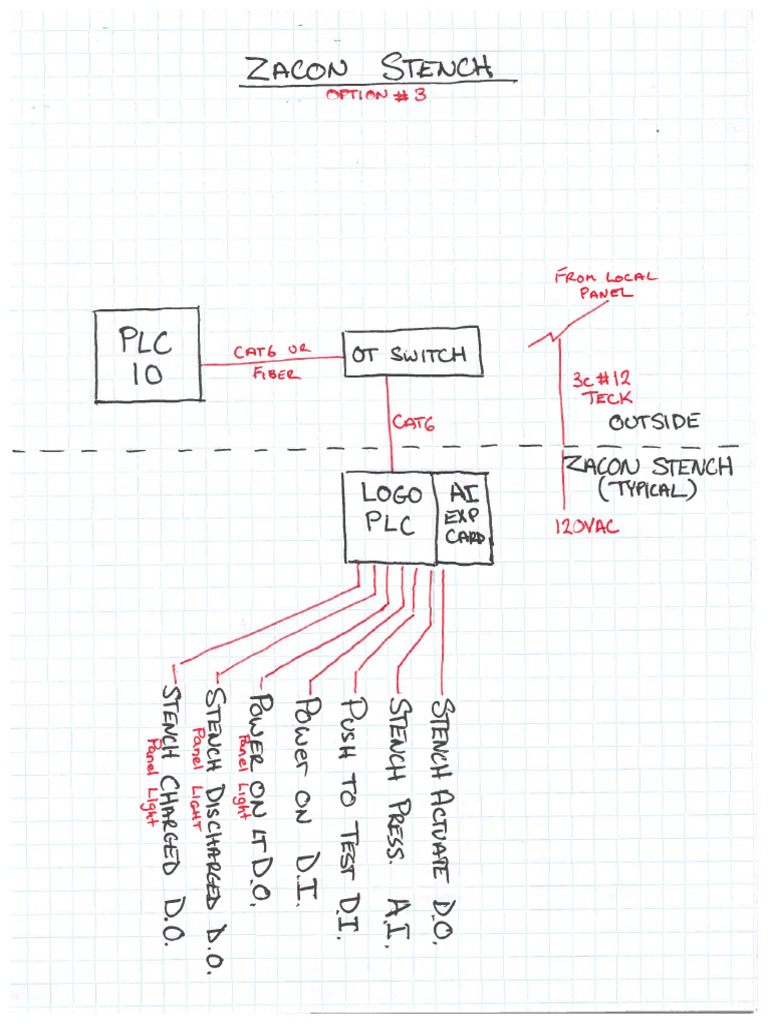 ZACON STENCH
OPTION # 3
FROM LOCAL
PANEL
PLC
IO
CAT6 OR
FIBER
OT SWITCH
3c #12
TECK
CAT6
OUTSIDE
ZACON STENCH
(TYPICAL)
120VAC
LOGO
PLC
AI
EXP
CARD
STENCH CHARGED D.O.
Panel Light
STENCH DISCHARGED D.O.
Panel LIGHT
POWER ON LT D.O.
Panel Light
POWER ON D.I.
PUSH TO TEST D.I.
STENCH PRESS. A.I.
STENCH ACTUATE D.O.